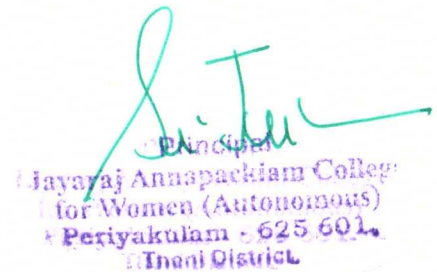 Principal
Jayaraj Annapackiam College
for Women (Autonomous)
Periyakulam - 625 601.
Theni District.